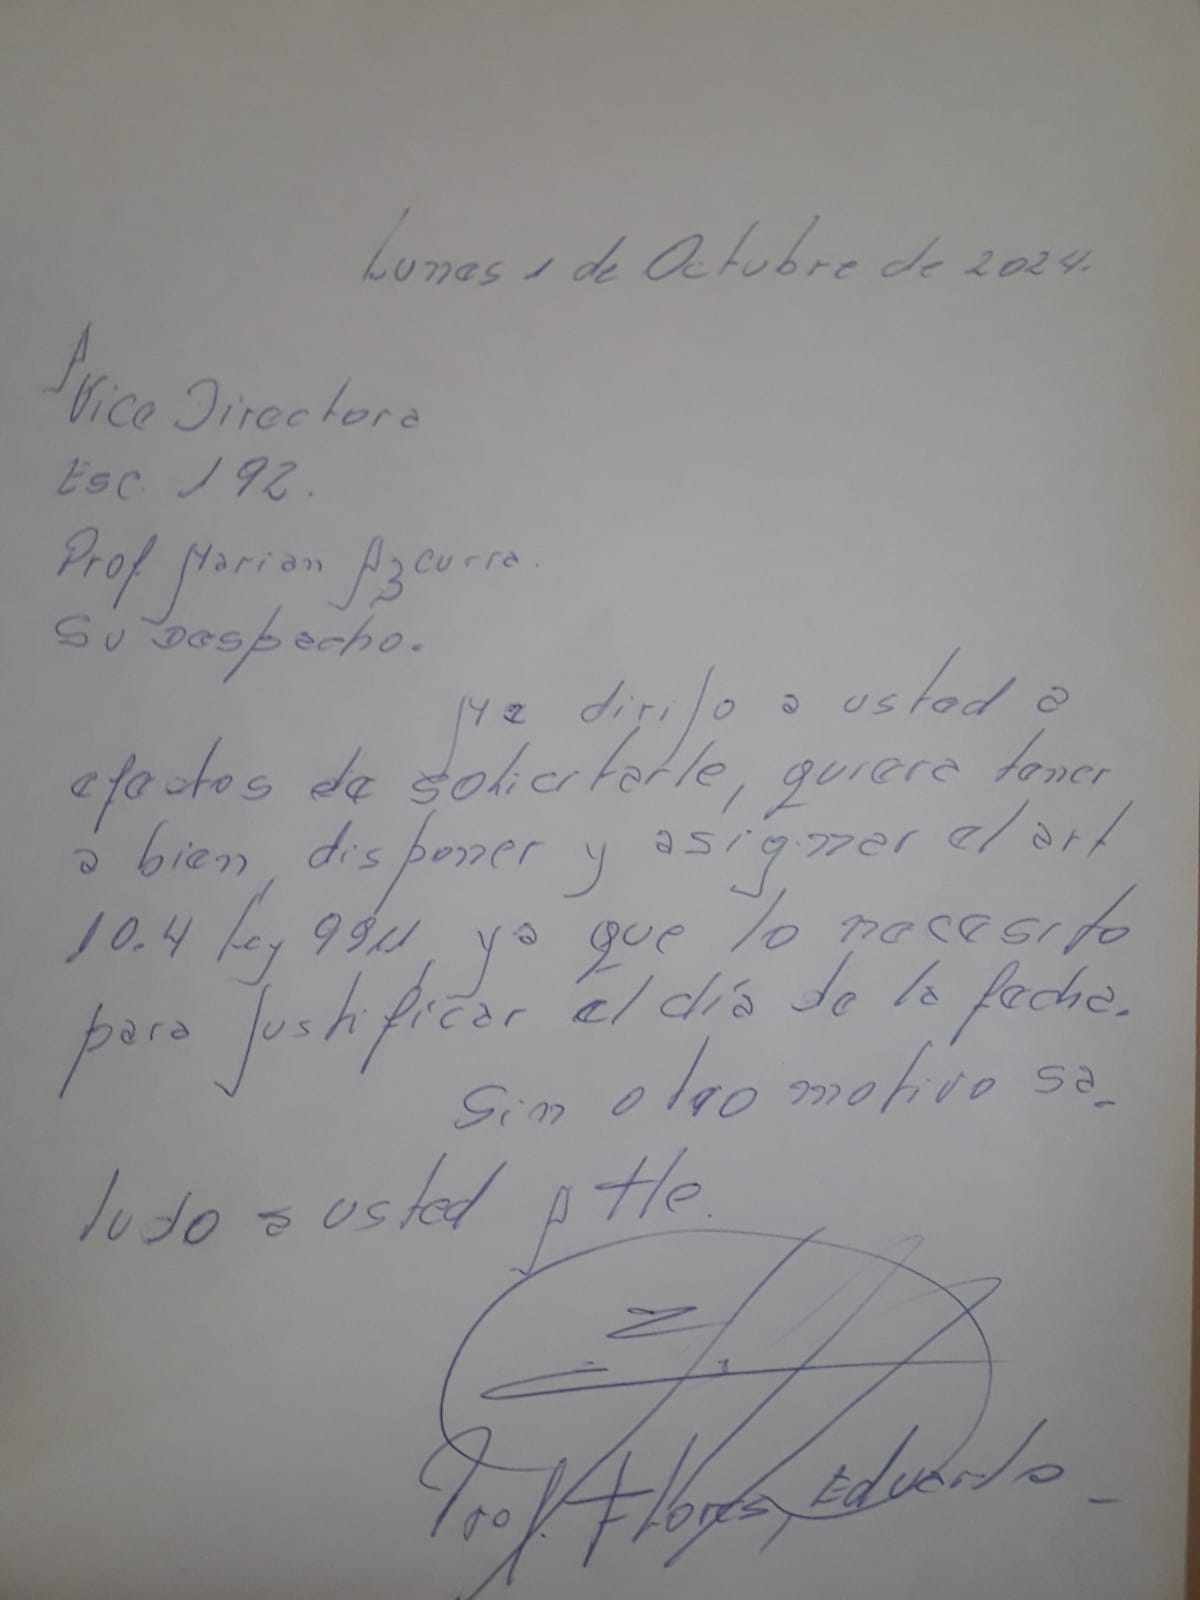 Lunes 1 de Octubre de 2024.
A
Vice Directora
Esc. 192.
Prof. Marian Azcurra.
Su Despacho.
Me dirijo a usted a
efectos de solicitarle, quiera tener
a bien, disponer y asignar el art
10.4 ley 9911, ya que lo necesito
para justificar el día de la fecha.
Sin otro motivo sa-
ludo a usted Atte.
Prof. Flores, Eduardo